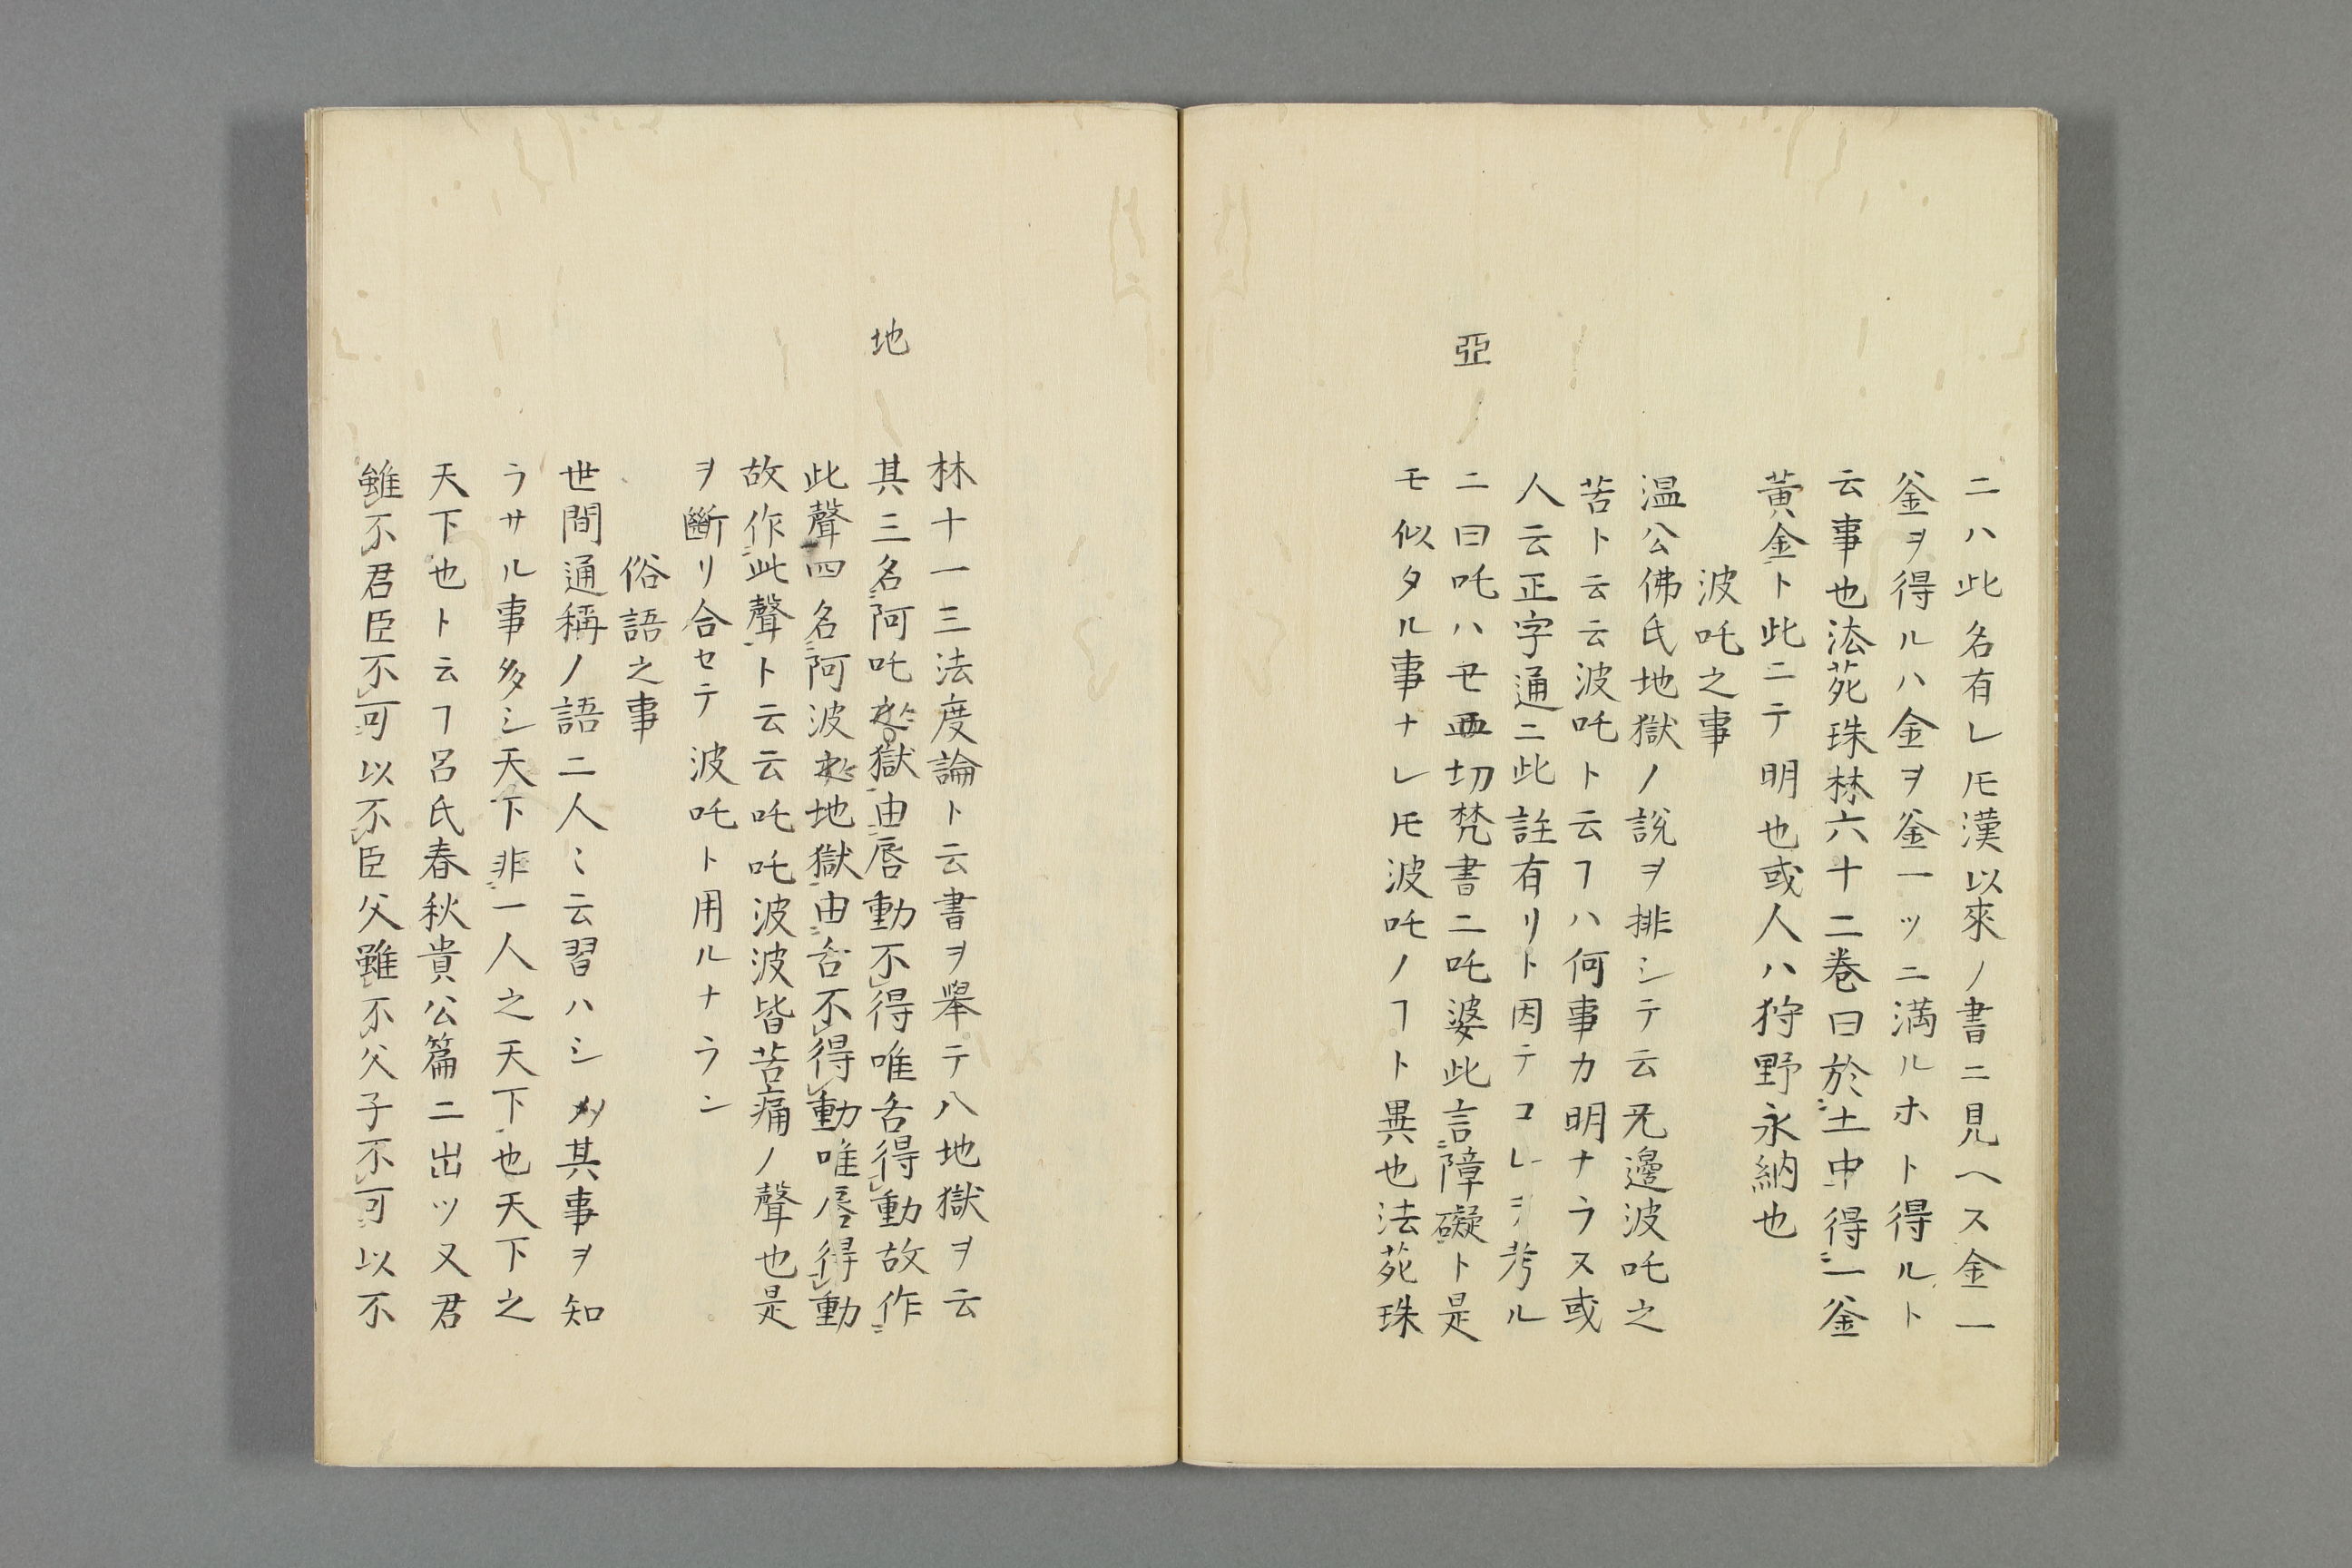 ニハ此名有レ𪜈漢以來ノ書ニ見ヘス金一
釜ヲ得ルハ金ヲ釜一ッニ満ルホト得ルト
云事也法苑珠林六十二巻曰於土中得一釜
黄金ト此ニテ明也或人ハ狩野永納也
波吒之事
温公佛氏地獄ノ說ヲ排シテ云无邊波吒之
苦ト云云波吒ト云ヿハ何事カ明ナラス或
人云正字通ニ此註有リト因テコレヲ考ル
亞
ニ曰吒ハ丑亞切梵書ニ吒婆此言障礙ト是
モ似タル事ナレ𪜈波吒ノヿト異也法苑珠
林十一三法度論ト云書ヲ舉テ八地獄ヲ云
地
其三名阿吒獄由唇動不得唯舌得動故作
此聲四名阿波地獄由舌不得動唯唇得動
故作此聲ト云云吒吒波波皆苦痛ノ聲也是
ヲ斷リ合セテ波吒ト用ルナラン
俗語之事
世間通稱ノ語ニ人〻云習ハシ其事ヲ知
ラサル事多シ天下非一人之天下也天下之
天下也ト云ヿ呂氏春秋貴公篇ニ出ッ又君
雖不君臣不可以不臣父雖不父子不可以不